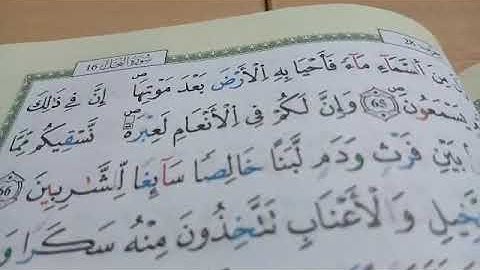 سُورَةُ النَّحْلِ 16
مِنَ ٱلسَّمَآءِ مَآءً فَأَحْيَا بِهِ ٱلْأَرْضَ بَعْدَ مَوْتِهَآ إِنَّ فِي ذَٰلِكَ
يَسْمَعُونَ 65 وَإِنَّ لَكُمْ فِي ٱلْأَنْعَامِ لَعِبْرَةً نُّسْقِيكُم مِّمَّا
بَيْنِ فَرْثٍ وَدَمٍ لَّبَنًا خَالِصًا سَآئِغًا لِّلشَّٰرِبِينَ 66
وَٱلْأَعْنَابِ تَتَّخِذُونَ مِنْهُ سَكَرًا وَ